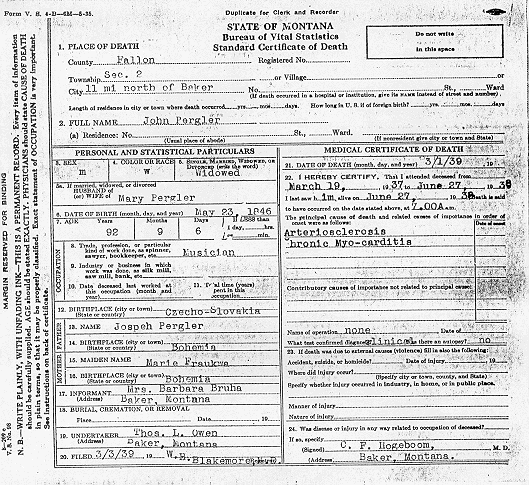 Form V. S. 4-D—6M—8-38.
Duplicate for Clerk and Recorder
STATE OF MONTANA
Bureau of Vital Statistics
Standard Certificate of Death
Do not write
in this space
1. PLACE OF DEATH
County Fallon Registered No.
Township Sec. 2 or Village or
City 11 mi north of Baker No. St., Ward
(If death occurred in a hospital or institution, give its NAME instead of street and number).
Length of residence in city or town where death occurred yrs. mos. days. How long in U. S. if of foreign birth? yrs. mos. days
2. FULL NAME John Pergler
(a) Residence: No. St., Ward.
(Usual place of abode) (If nonresident give city or town and State)
PERSONAL AND STATISTICAL PARTICULARS
3. SEX m
4. COLOR OR RACE W
5. SINGLE, MARRIED, WIDOWED, OR DIVORCED (write the word) Widowed
5a. If married, widowed, or divorced
HUSBAND of
(or) WIFE of Mary Pergler
6. DATE OF BIRTH (month, day, and year) May 23, 1846
7. AGE 92 9 6 If LESS than 1 day, hrs. or min.
OCCUPATION
8. Trade, profession, or particular
kind of work done, as spinner,
sawyer, bookkeeper, etc. Musician
9. Industry or business in which
work was done, as silk mill,
saw mill, bank, etc.
10. Date deceased last worked at
this occupation (month and
year)
11. Total time (years)
spent in this
occupation
12. BIRTHPLACE (city or town) Czecho-Slovakia
(State or country)
FATHER
13. NAME Jospeh Pergler
14. BIRTHPLACE (city or town) Bohemia
(State or country)
MOTHER
15. MAIDEN NAME Marie Fraukwa
16. BIRTHPLACE (city or town) Bohemia
(State or country)
17. INFORMANT Mrs. Barbara Bruha
(Address) Baker, Montana
18. BURIAL, CREMATION, OR REMOVAL
Place Date 19
19. UNDERTAKER Thos. L. Owen
(Address) Baker, Montana
20. FILED 3/3/39 19 W.B. Blakemore, M.D.
MEDICAL CERTIFICATE OF DEATH
21. DATE OF DEATH (month, day, and year) 3/1/39 19
22. I HEREBY CERTIFY, That I attended deceased from
March 19, 1937 to June 27, 1938
I last saw him alive on June 27, 1938 death is said
to have occurred on the date stated above, at 7.00A.m.
The principal cause of death and related causes of importance in order of
onset were as follows: Date of onset
Arteriosclerosis
hronic Myo-carditis
Contributory causes of importance not related to principal cause:
Name of operation none Date of
What test confirmed diagnosis? clinical Was there an autopsy? no
23. If death was due to external causes (violence) fill in also the following:
Accident, suicide, or homicide? Date of injury 19
Where did injury occur?
(Specify city or town, county, and State)
Specify whether injury occurred in industry, in home, or in public place.
Manner of injury
Nature of injury
24. Was disease or injury in any way related to occupation of deceased?
If so, specify
(Signed) C. F. Hogeboom, M. D.
(Address) Baker, Montana.
MARGIN RESERVED FOR BINDING
N. B.—WRITE PLAINLY, WITH UNFADING INK—THIS IS A PERMANENT RECORD. Every item of information
should be carefully supplied. AGE should be stated EXACTLY. PHYSICIANS should state CAUSE OF DEATH
in plain terms, so that it may be properly classified. Exact statement of OCCUPATION is very important.
See instructions on back of certificate.